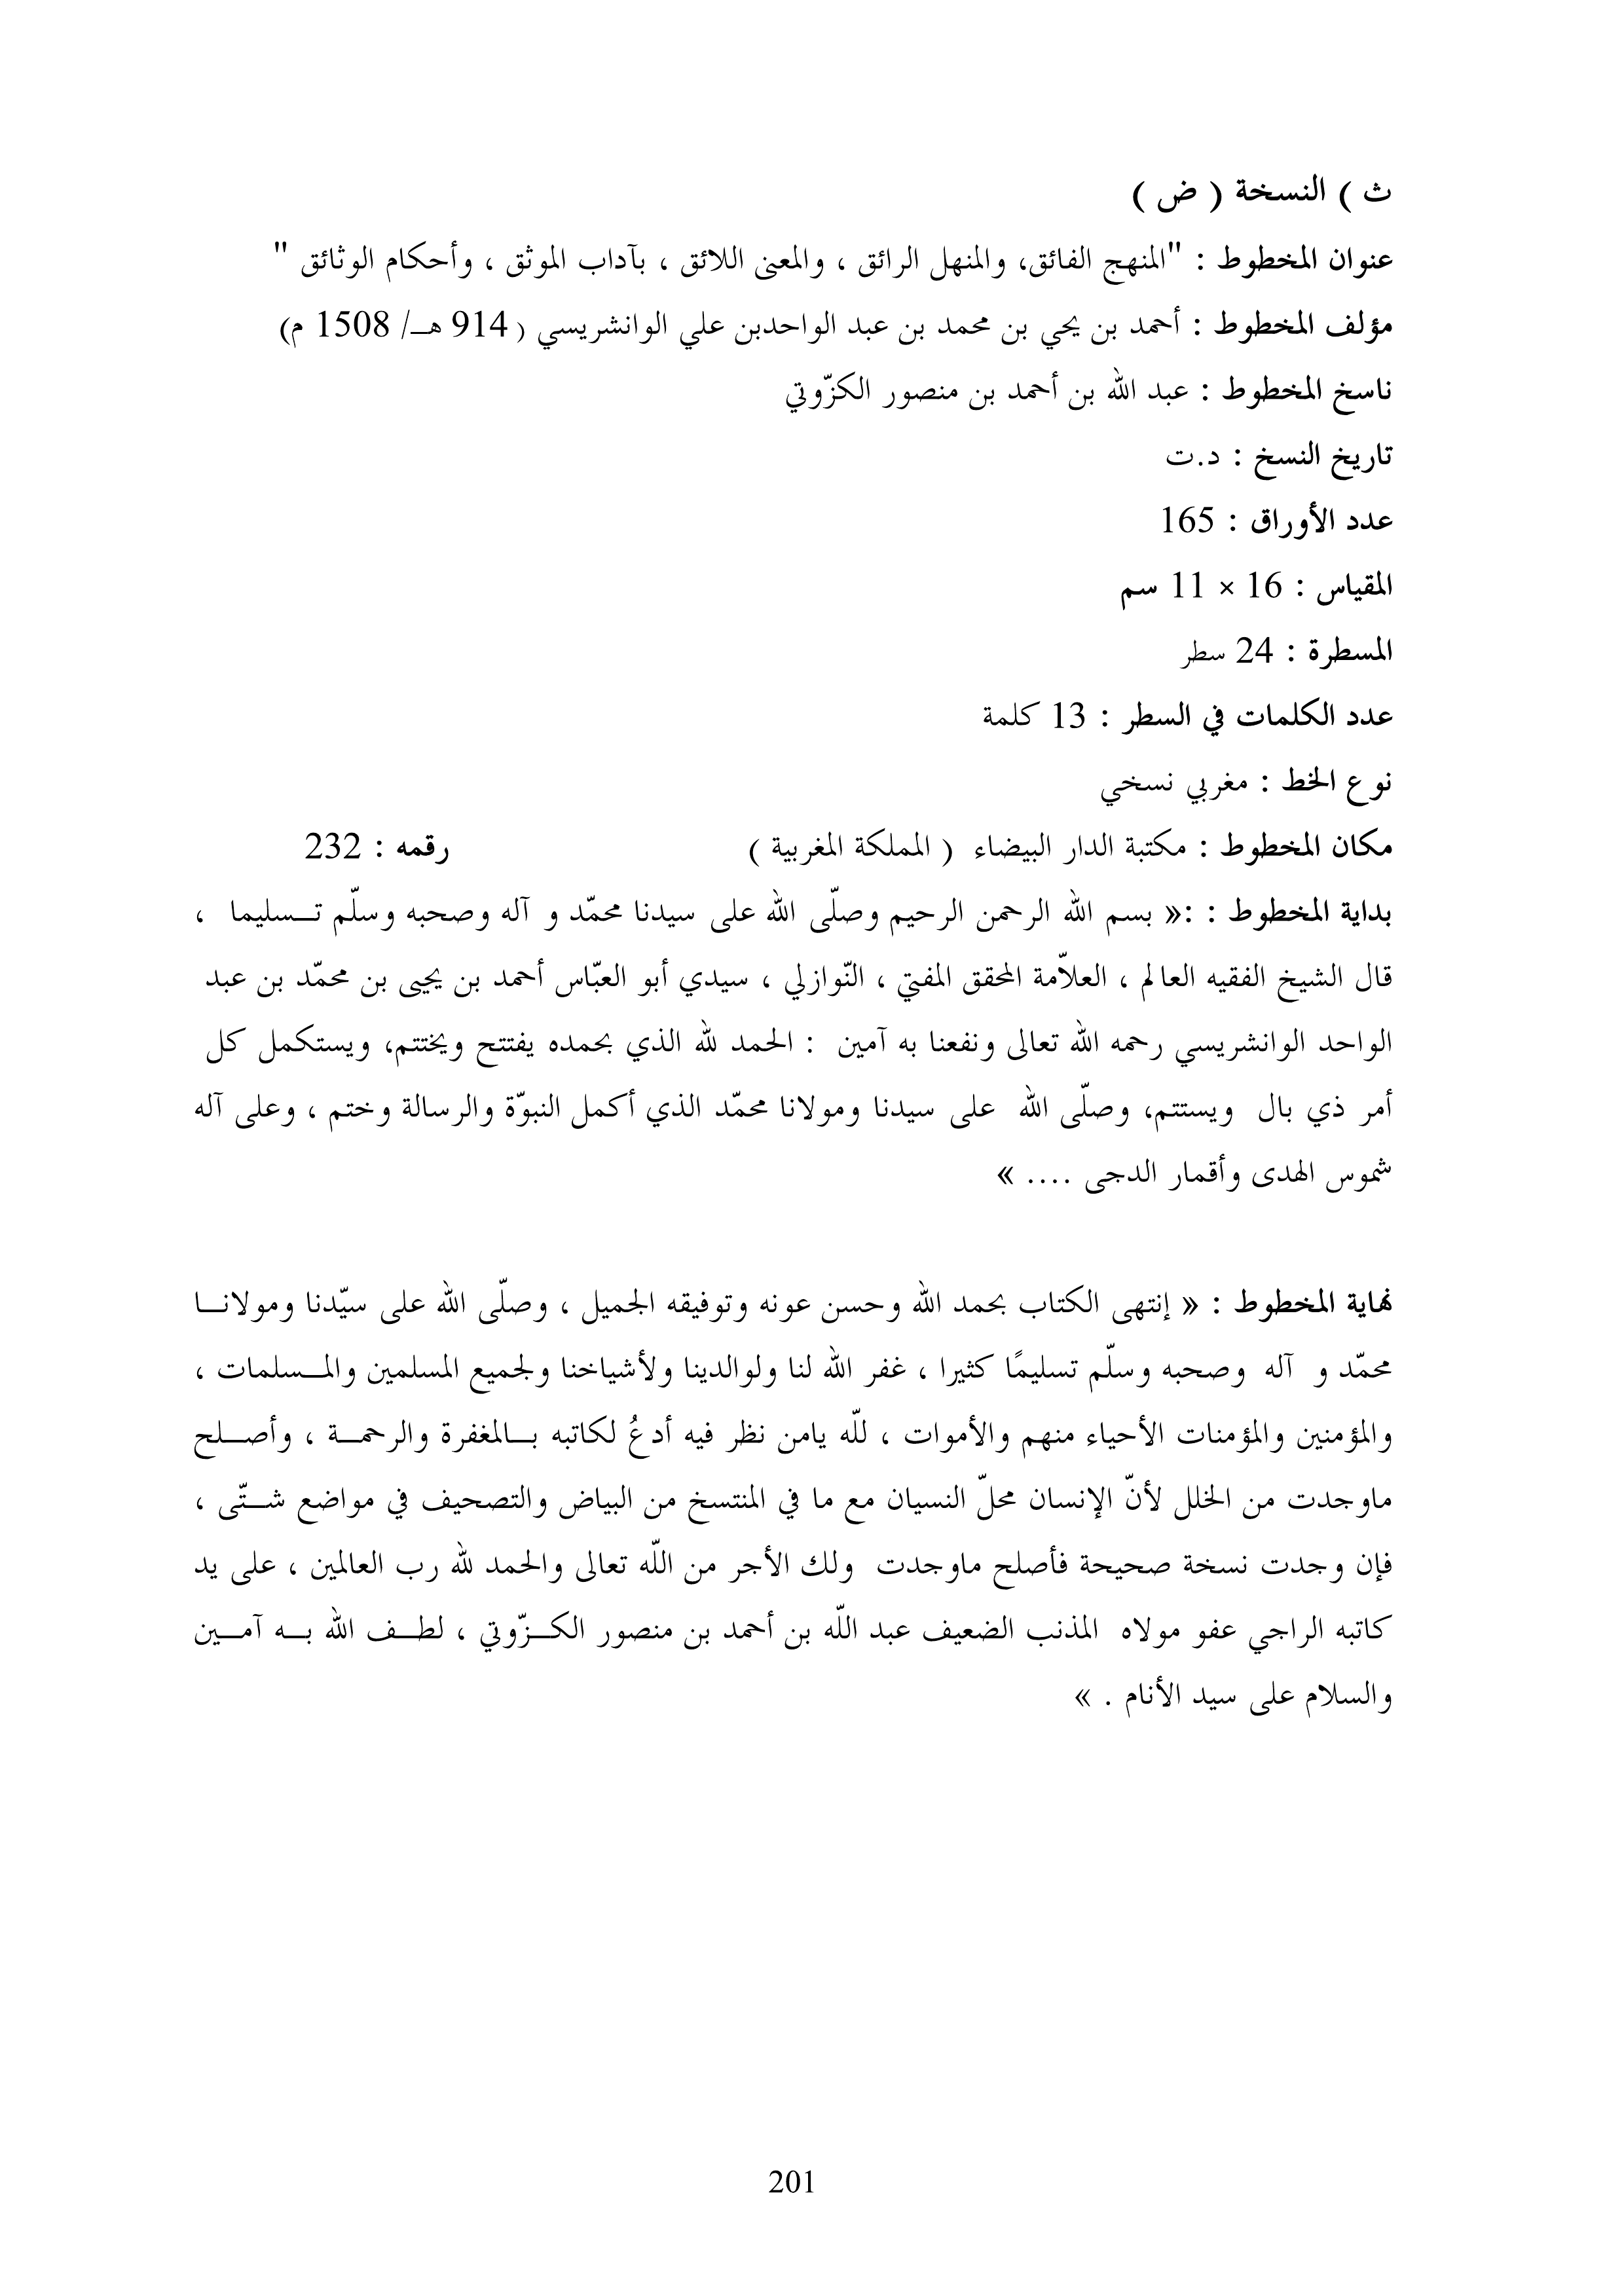 ث ) النسخة ( ض )
عنوان المخطوط : "المنهج الفائق، والمنهل الرائق ، والمعنى اللائق ، بآداب الموثق ، وأحكام الوثائق "
مؤلف المخطوط : أحمد بن يحي بن محمد بن عبد الواحدبن علي الوانشريسي ( 914 هـ/ 1508 م)
ناسخ المخطوط : عبد الله بن أحمد بن منصور الكزّوتي
تاريخ النسخ : د.ت
عدد الأوراق : 165
المقياس : 16 × 11 سم
المسطرة : 24 سطر
عدد الكلمات في السطر : 13 كلمة
نوع الخط : مغربي نسخي
مكان المخطوط : مكتبة الدار البيضاء ( المملكة المغربية ) رقمه : 232
بداية المخطوط : :« بسم الله الرحمن الرحيم وصلّى الله على سيدنا محمّد و آله وصحبه وسلّم تـسليما ،
قال الشيخ الفقيه العالم ، العلاّمة المحقق المفتي ، النّوازلي ، سيدي أبو العبّاس أحمد بن يحيى بن محمّد بن عبد
الواحد الوانشريسي رحمه الله تعالى ونفعنا به آمين : الحمد لله الذي بحمده يفتتح ويختتم، ويستكمل كل
أمر ذي بال ويستتم، وصلّى الله على سيدنا ومولانا محمّد الذي أكمل النبوّة والرسالة وختم ، وعلى آله
شموس الهدى وأقمار الدجى .... »
نهاية المخطوط : « إنتهى الكتاب بحمد الله وحسن عونه وتوفيقه الجميل ، وصلّى الله على سيّدنا ومولانـا
محمّد و آله وصحبه وسلّم تسليمًا كثيرا ، غفر الله لنا ولوالدينا ولأشياخنا ولجميع المسلمين والمـسلمات ،
والمؤمنين والمؤمنات الأحياء منهم والأموات ، للّه يامن نظر فيه أدعُ لكاتبه بـالمغفرة والرحمـة ، وأصـلح
ماوجدت من الخلل لأنّ الإنسان محلّ النسيان مع ما في المنتسخ من البياض والتصحيف في مواضع شـتّى ،
فإن وجدت نسخة صحيحة فأصلح ماوجدت ولك الأجر من اللّه تعالى والحمد لله رب العالمين ، على يد
كاتبه الراجي عفو مولاه المذنب الضعيف عبد اللّه بن أحمد بن منصور الكـزّوتي ، لطـف الله بـه آمـين
والسلام على سيد الأنام . »
201